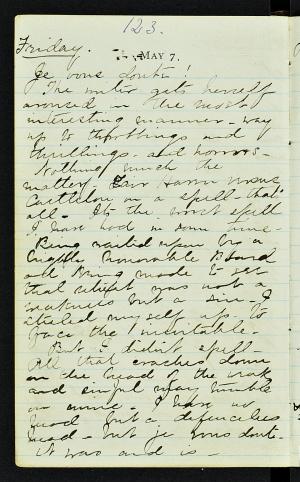 123.
Friday.
MAY 7.
Je vous doute!
The writer gets herself
aroused in the most
interesting manner - way
up to throbbings and
thrillings - and horrors -
Nothing much the
matter -
on a spell - that's
all - It's the worst spell
I have had in some time -
Being waited upon by a
Honorable Board
and being made to see
that was not a
weakness but a sin - I
myself up to
face the inevitable -
But I didn't spell -
All that coaches down
on the head of the weak
and sinful may tumble
on mine - I have no
head but a defenceless
head - but je vous doute -
it was and is -